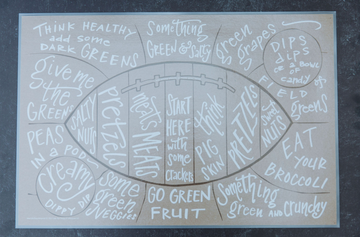 THINK HEALTHY
add some
DARK GREENS
Something
GREEN & a Salty
green
grapes
DIPS
dips
or a BOWL
of
candy
give me
the
GREEN
FIELD
of
greens
SALTY
NUTS
pretzels
meats
MEATS
START
HERE
with
some
crackers
think
PIG
SKIN
PRETZELS
PEAS
IN A POD
EAT
YOUR
BROCCOLI
creamy
DIPPY DIP
Some
green
VEGGIES
GO GREEN
FRUIT
Something
green AND crunchy